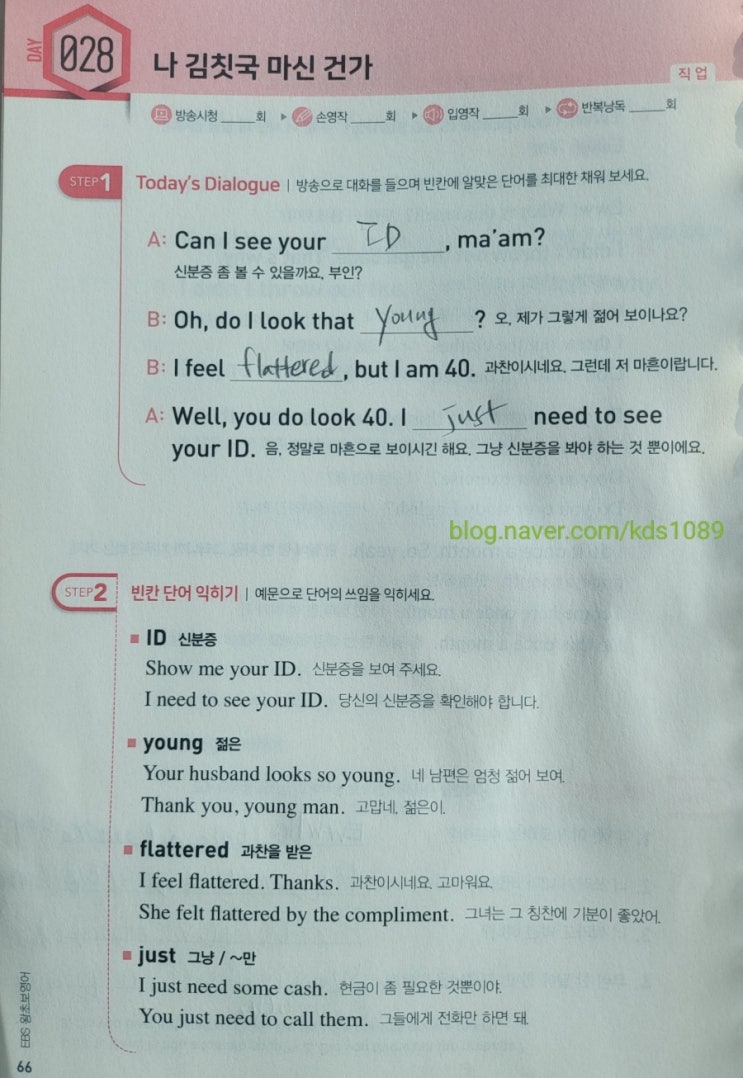 DAY 028 나 김칫국 마신 건가
직업
방송시청 _____회 ▶ 손영작 _____회 ▶ 입영작 _____회 ▶ 반복낭독 _____회
STEP 1 Today's Dialogue | 방송으로 대화를 들으며 빈칸에 알맞은 단어를 최대한 채워 보세요.
A: Can I see your ID, ma'am?
신분증 좀 볼 수 있을까요, 부인?
B: Oh, do I look that young? 오, 제가 그렇게 젊어 보이나요?
B: I feel flattered, but I am 40. 과찬이시네요. 그런데 저 마흔이랍니다.
A: Well, you do look 40. I just need to see
your ID. 음, 정말로 마흔으로 보이시긴 해요. 그냥 신분증을 봐야 하는 것 뿐이에요.
blog.naver.com/kds1089
STEP 2 빈칸 단어 익히기 | 예문으로 단어의 쓰임을 익히세요.
■ ID 신분증
Show me your ID. 신분증을 보여 주세요.
I need to see your ID. 당신의 신분증을 확인해야 합니다.
■ young 젊은
Your husband looks so young. 네 남편은 엄청 젊어 보여.
Thank you, young man. 고맙네, 젊은이.
■ flattered 과찬을 받은
I feel flattered. Thanks. 과찬이시네요. 고마워요.
She felt flattered by the compliment. 그녀는 그 칭찬에 기분이 좋았어.
■ just 그냥 / ~만
I just need some cash. 현금이 좀 필요한 것뿐이야.
You just need to call them. 그들에게 전화만 하면 돼.
EBS 왕초보영어
66